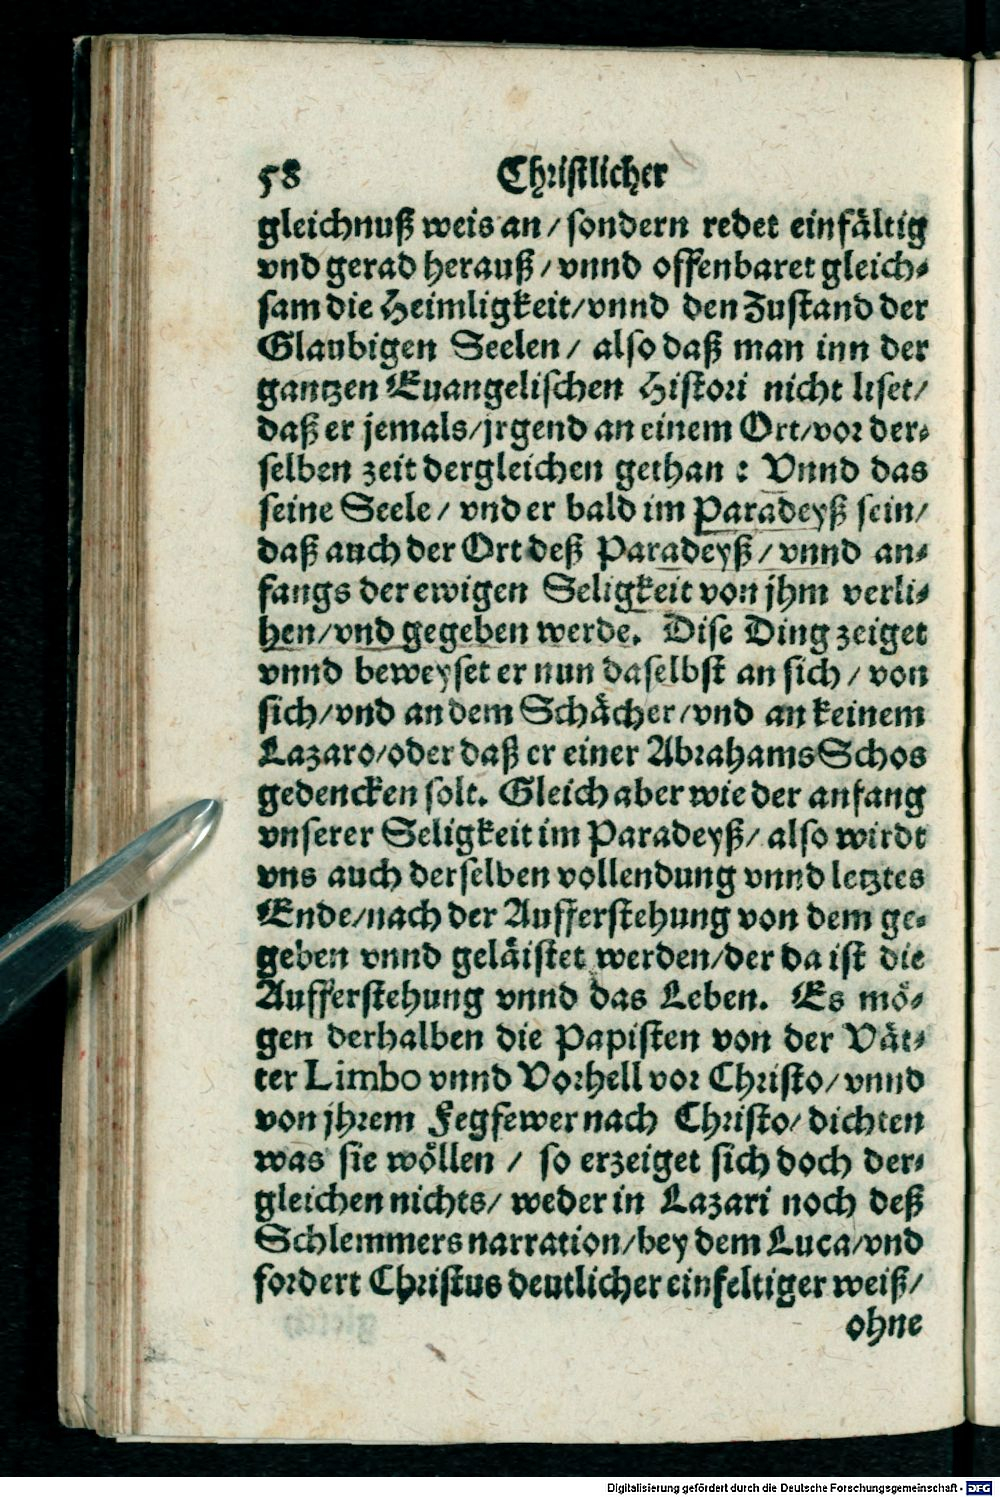 58 Christlicher
gleichnuß weis an / sondern redet einfältig
vnd gerad herauß / vnnd offenbaret gleich⸗
sam die Heimligkeit / vnnd den Zustand der
Glaubigen Seelen / also daß man inn der
gantzen Euangelischen Histori nicht liset /
daß er jemals / jrgend an einem Ort / vor der⸗
selben zeit dergleichen gethan : Vnnd das
seine Seele / vnd er bald im Paradeyß sein /
daß auch der Ort deß Paradeyß / vnnd an⸗
fangs der ewigen Seligkeit von jhm verli⸗
hen / vnd gegeben werde. Dise Ding zeiget
vnnd beweyset er nun daselbst an sich / von
sich / vnd an dem Schächer / vnd an keinem
Lazaro / oder daß er einer Abrahams Schos
gedencken solt. Gleich aber wie der anfang
vnserer Seligkeit im Paradeyß / also wirdt
vns auch derselben vollendung vnnd letztes
Ende / nach der Aufferstehung von dem ge⸗
geben vnnd geläistet werden / der da ist die
Aufferstehung vnnd das Leben. Es mö⸗
gen derhalben die Papisten von der Vät⸗
ter Limbo vnnd Vorhell vor Christo / vnnd
von jhrem Fegfewer nach Christo / dichten
was sie wöllen / so erzeiget sich doch der⸗
gleichen nichts / weder in Lazari noch deß
Schlemmers narration / bey dem Luca / vnd
fordert Christus deutlicher einfeltiger weiß /
ohne
Digitalisierung gefördert durch die Deutsche Forschungsgemeinschaft - DFG